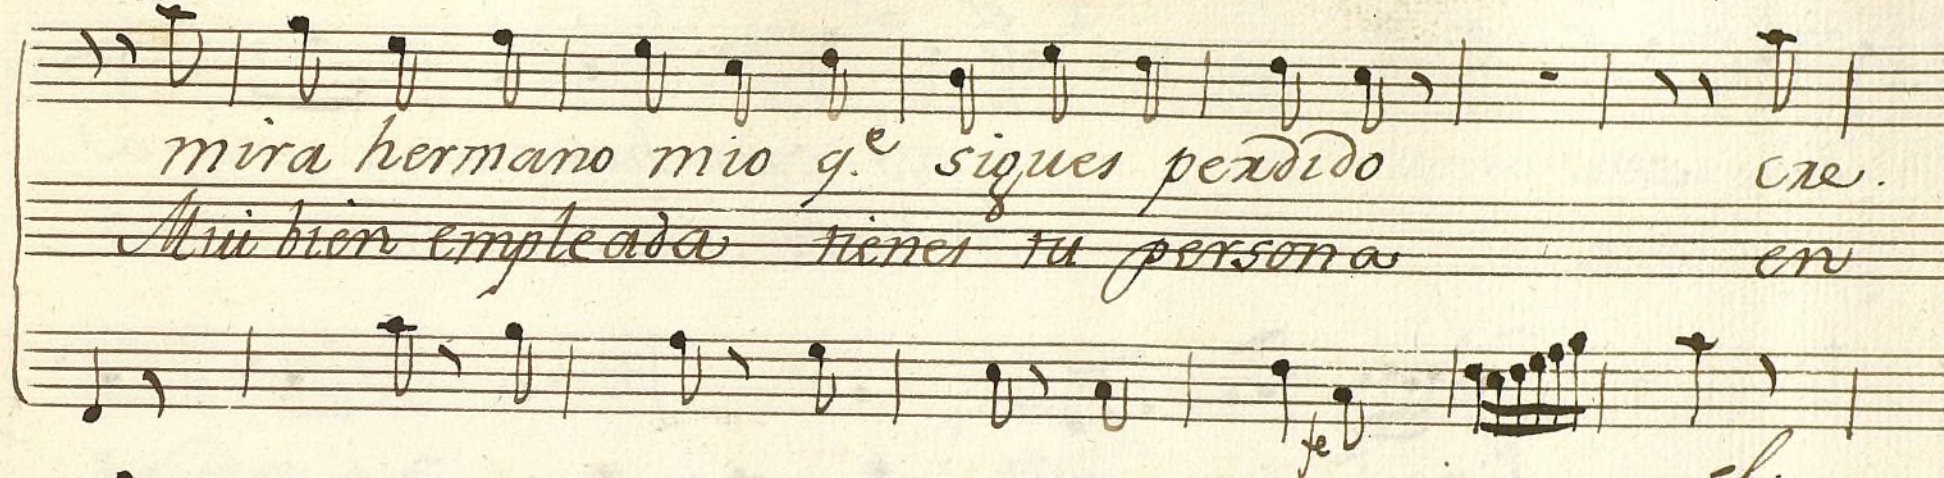 mira hermano mio q.e sigues perdido cre.
Mui bien empleada tienes tu persona en
fe